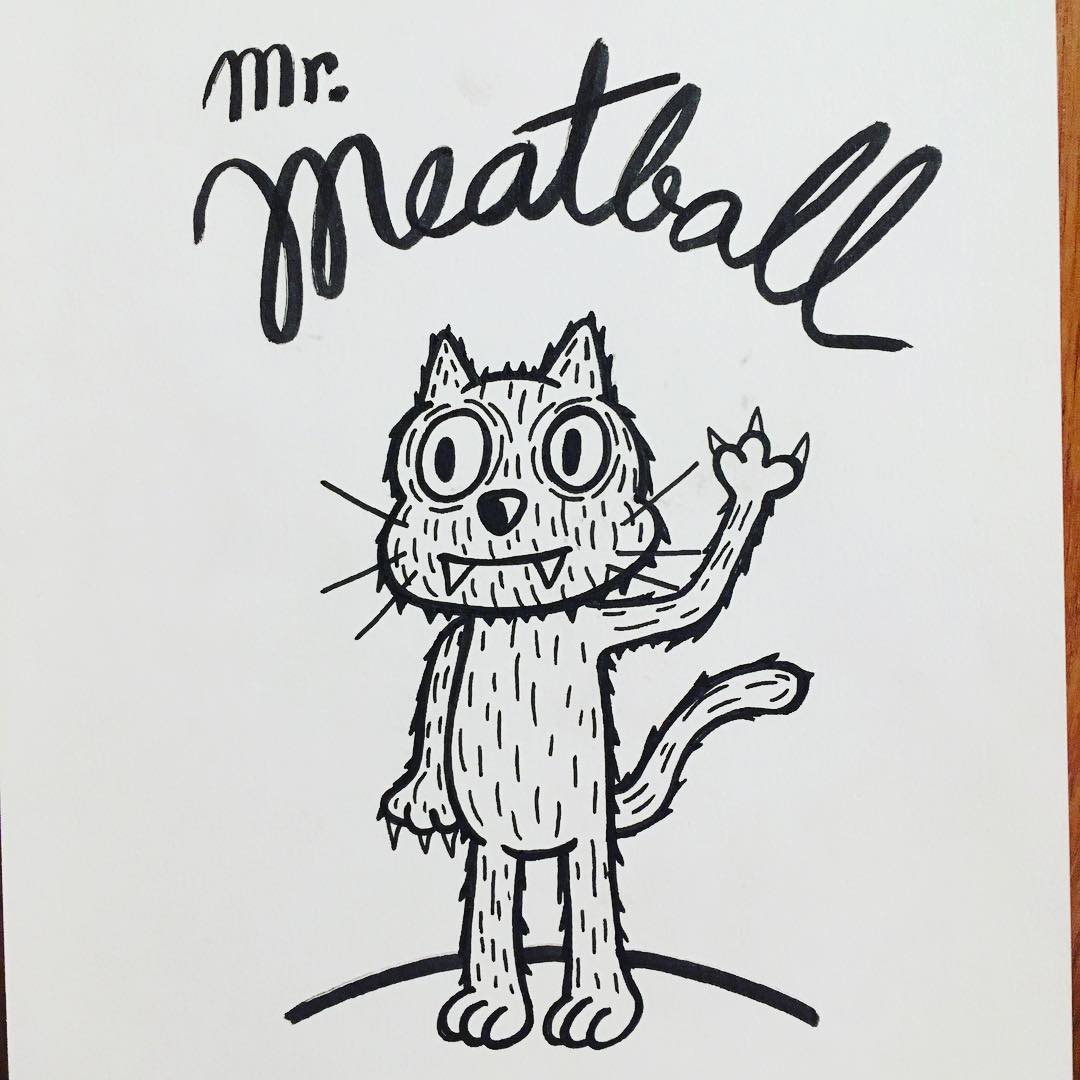 Mr.
Meatball